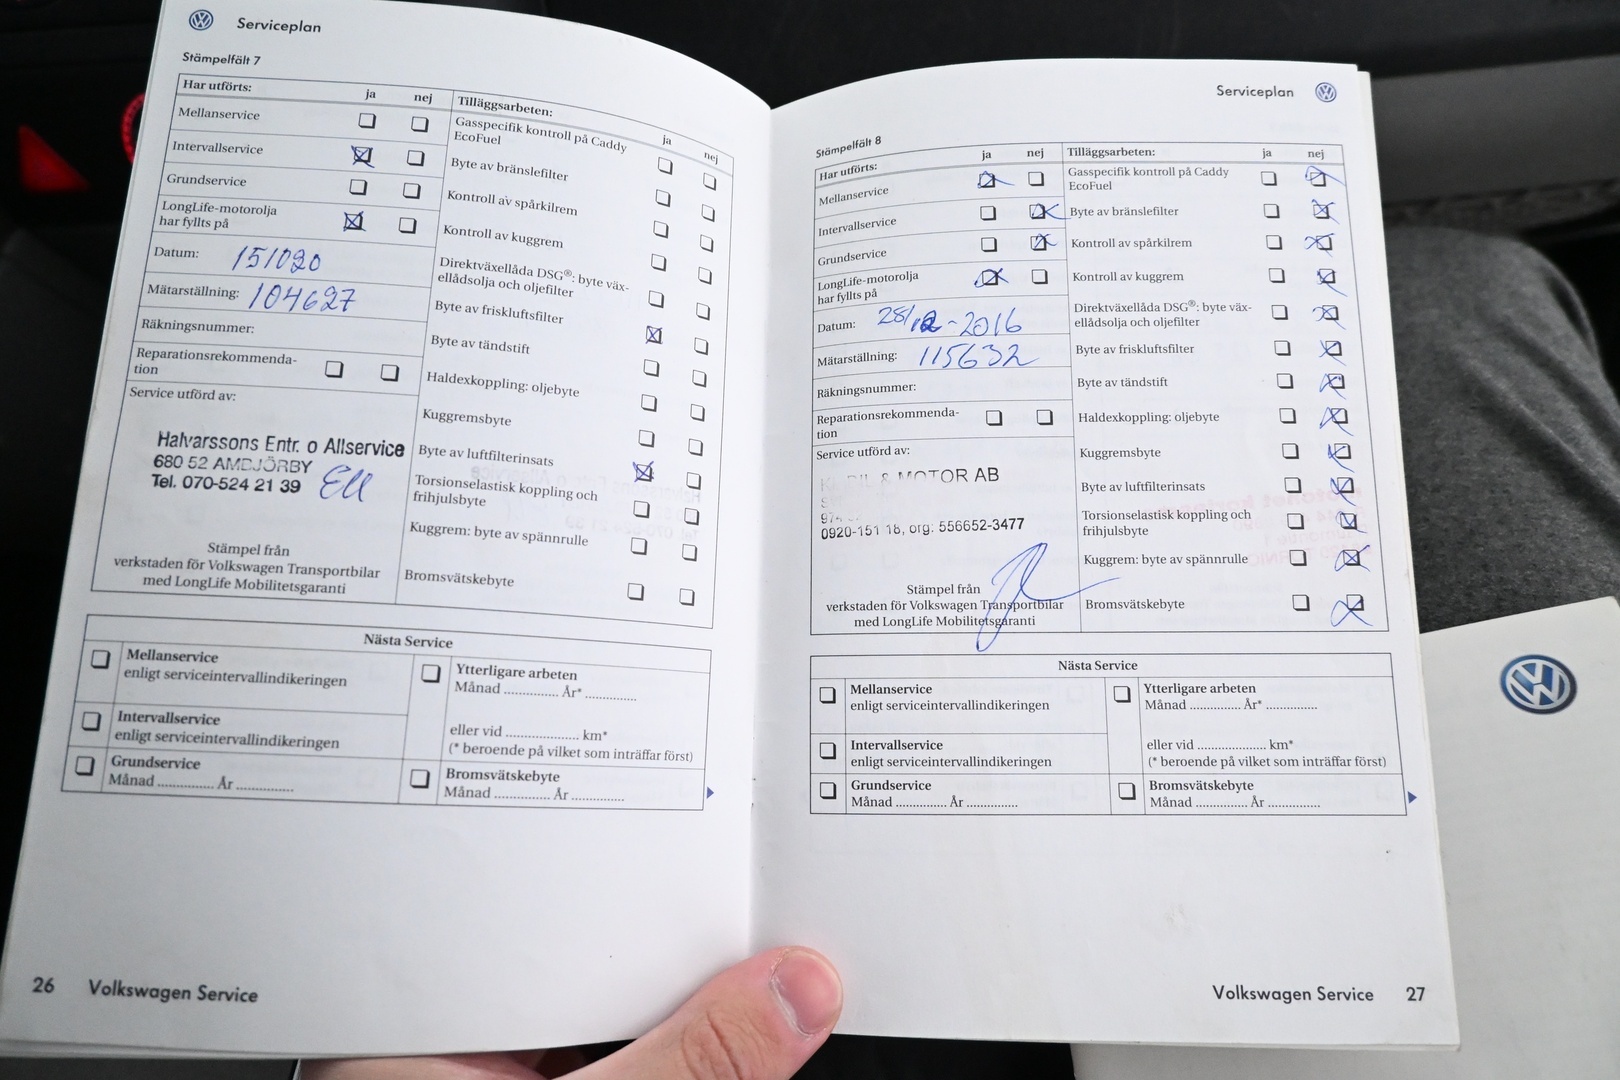 Serviceplan
Stämpelfält 7
Har utförts:
ja nej
Mellanservice
Intervallservice
Grundservice
LongLife-motorolja
har fyllts på
Datum: 151020
Mätarställning: 104627
Räkningsnummer:
Reparationsrekommenda-
tion
Service utförd av:
Halvarssons Entr. o Allservice
680 52 AMBJÖRBY
Tel. 070-524 21 39
Stämpel från
verkstaden för Volkswagen Transportbilar
med LongLife Mobilitetsgaranti
Tilläggsarbeten:
ja nej
Gasspecifik kontroll på Caddy
EcoFuel
Byte av bränslefilter
Kontroll av spårkilrem
Kontroll av kuggrem
Direktväxellåda DSG®: byte väx-
ellådsolja och oljefilter
Byte av friskluftsfilter
Byte av tändstift
Haldexkoppling: oljebyte
Kuggremsbyte
Byte av luftfilterinsats
Torsionselastisk koppling och
frihjulsbyte
Kuggrem: byte av spännrulle
Bromsvätskebyte
Nästa Service
Mellanservice
enligt serviceintervallindikeringen
Intervallservice
enligt serviceintervallindikeringen
Grundservice
Månad .............. År ..............
Ytterligare arbeten
Månad .............. År* .............
eller vid .................... km*
(* beroende på vilket som inträffar först)
Bromsvätskebyte
Månad .............. År .............
26 Volkswagen Service
Serviceplan
Stämpelfält 8
Har utförts:
ja nej
Mellanservice
Intervallservice
Grundservice
LongLife-motorolja
har fyllts på
Datum: 28/12-2016
Mätarställning: 115632
Räkningsnummer:
Reparationsrekommenda-
tion
Service utförd av:
& MOTOR AB
0920-151 18, org: 556652-3477
Stämpel från
verkstaden för Volkswagen Transportbilar
med LongLife Mobilitetsgaranti
Tilläggsarbeten:
ja nej
Gasspecifik kontroll på Caddy
EcoFuel
Byte av bränslefilter
Kontroll av spårkilrem
Kontroll av kuggrem
Direktväxellåda DSG®: byte väx-
ellådsolja och oljefilter
Byte av friskluftsfilter
Byte av tändstift
Haldexkoppling: oljebyte
Kuggremsbyte
Byte av luftfilterinsats
Torsionselastisk koppling och
frihjulsbyte
Kuggrem: byte av spännrulle
Bromsvätskebyte
Nästa Service
Mellanservice
enligt serviceintervallindikeringen
Intervallservice
enligt serviceintervallindikeringen
Grundservice
Månad ............. År .............
Ytterligare arbeten
Månad ............. År* .............
eller vid .................... km*
(* beroende på vilket som inträffar först)
Bromsvätskebyte
Månad ............. År .............
Volkswagen Service 27